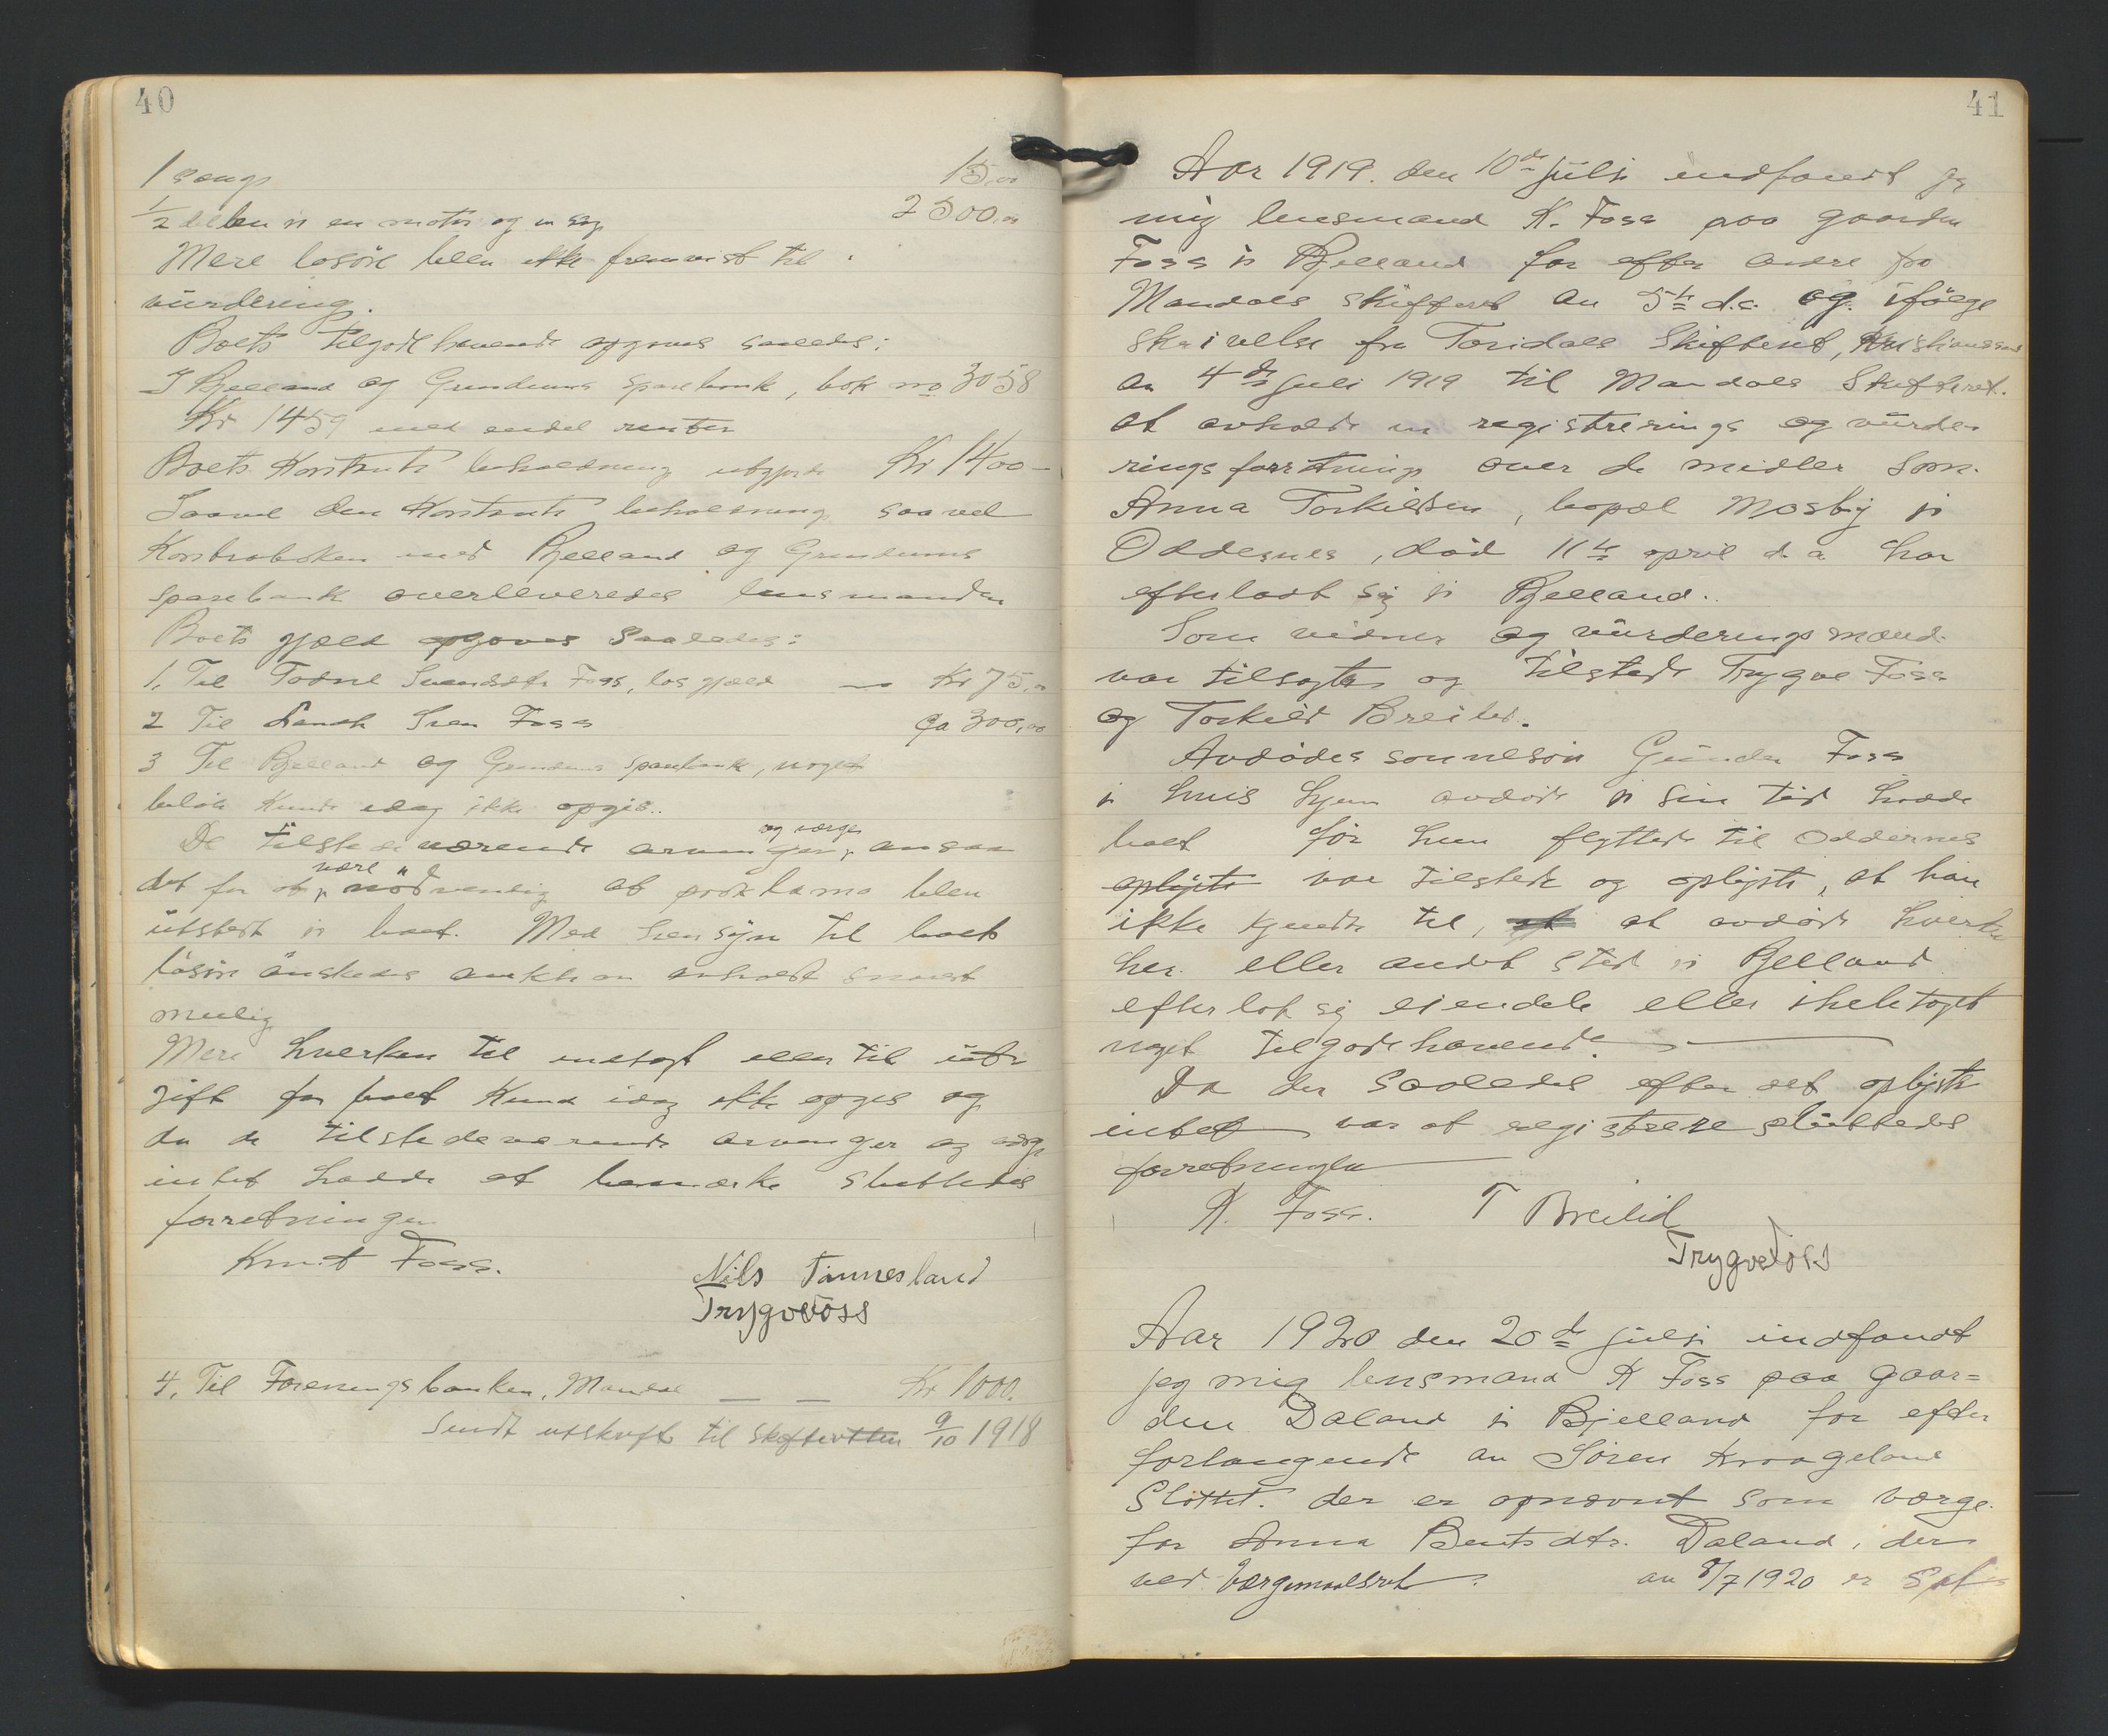 40
1 seng 15,00
1/2 delen i en motor og en sag 2500,00
Mere løsøre blev ikke fremvist til
vurdering.
Boets tilgodehavende opgaves saaledes:
I Bjelland og Grindums sparebank, bok no 3058
Kr 1459 med endel renter
Boets Kontante beholdning utgjorde Kr 1400 -
Saavel den Kontante beholdning saavel
Kontraboken med Bjelland og Grindums
sparebank overleveredes lensmanden
Boets gjæld opgaves saaledes:
1. Til Todne Svendsdtr Foss, løs gjæld — Kr 75,00
2 Til Sven Foss Ca 300,00
3 Til Bjelland og Grindums sparebank, noget
beløb kunde idag ikke opgis..
De tilstedeværende arvinger og værge ansaa
det for at være nødvendig at proklama blev
utstedt i boet. Med hensyn til boets
løsøre ønskedes auktion avholdt snarest
mulig
Mere hverken til indtægt eller til ut-
gift for boet kunde idag ikke opgis og
da de tilstedeværende arvinger og værge
intet hadde at bemærke sluttedes
forretningen
Knut Foss.
Nils Tånnesland
Trygve Foss
4. Til Foreningsbanken, Mandal — — Kr 1000.
Sendt utskrift til skifteretten 9/10 1918
41
Aar 1919. den 10de juli indfandt jeg
mig lensmand K. Foss paa gaarden
Foss i Bjelland for efter ordre fra
Mandals skifteret av 5te d.a. og ifølge
skrivelse fra Toridals Skifteret, Kristiansand
av 4de juli 1919 til Mandals Skifteret.
at avholde en registrerings og vurde-
ringsforretning over de midler som
Anna Torkildsen, bopæl Mosby i
Oddernes, død 11te april d.a. har
efterladt sig i Bjelland.
Som vidner og vurderingsmænd
var tilsagte og tilstede Trygve Foss
og Torkild Breilid.
Avdødes sønnesøn Gunder Foss
i hvis hjem avdøde i sin tid hadde
boet før hun flyttede til Oddernes
oplyste var tilstede og oplyste, at han
ikke kjendte til, at at avdøde hverken
her eller andet sted i Bjelland
efterlot sig eiendele eller iheletaget
noget tilgodehavende. —
Da der saaledes efter det oplyste
intet var at registrere sluttedes
forretningen
K. Foss. T Breilid
Trygve Foss
Aar 1920 den 20de juli indfandt
jeg mig lensmand K Foss paa gaar=
den Daland i Bjelland for efter
forlangende av Søren Kraageland
Slottet. der er opnævnt som værge
for Anna Bentsdtr. Daland, der
ved Værgemaalsret av 8/7 1920 er sat